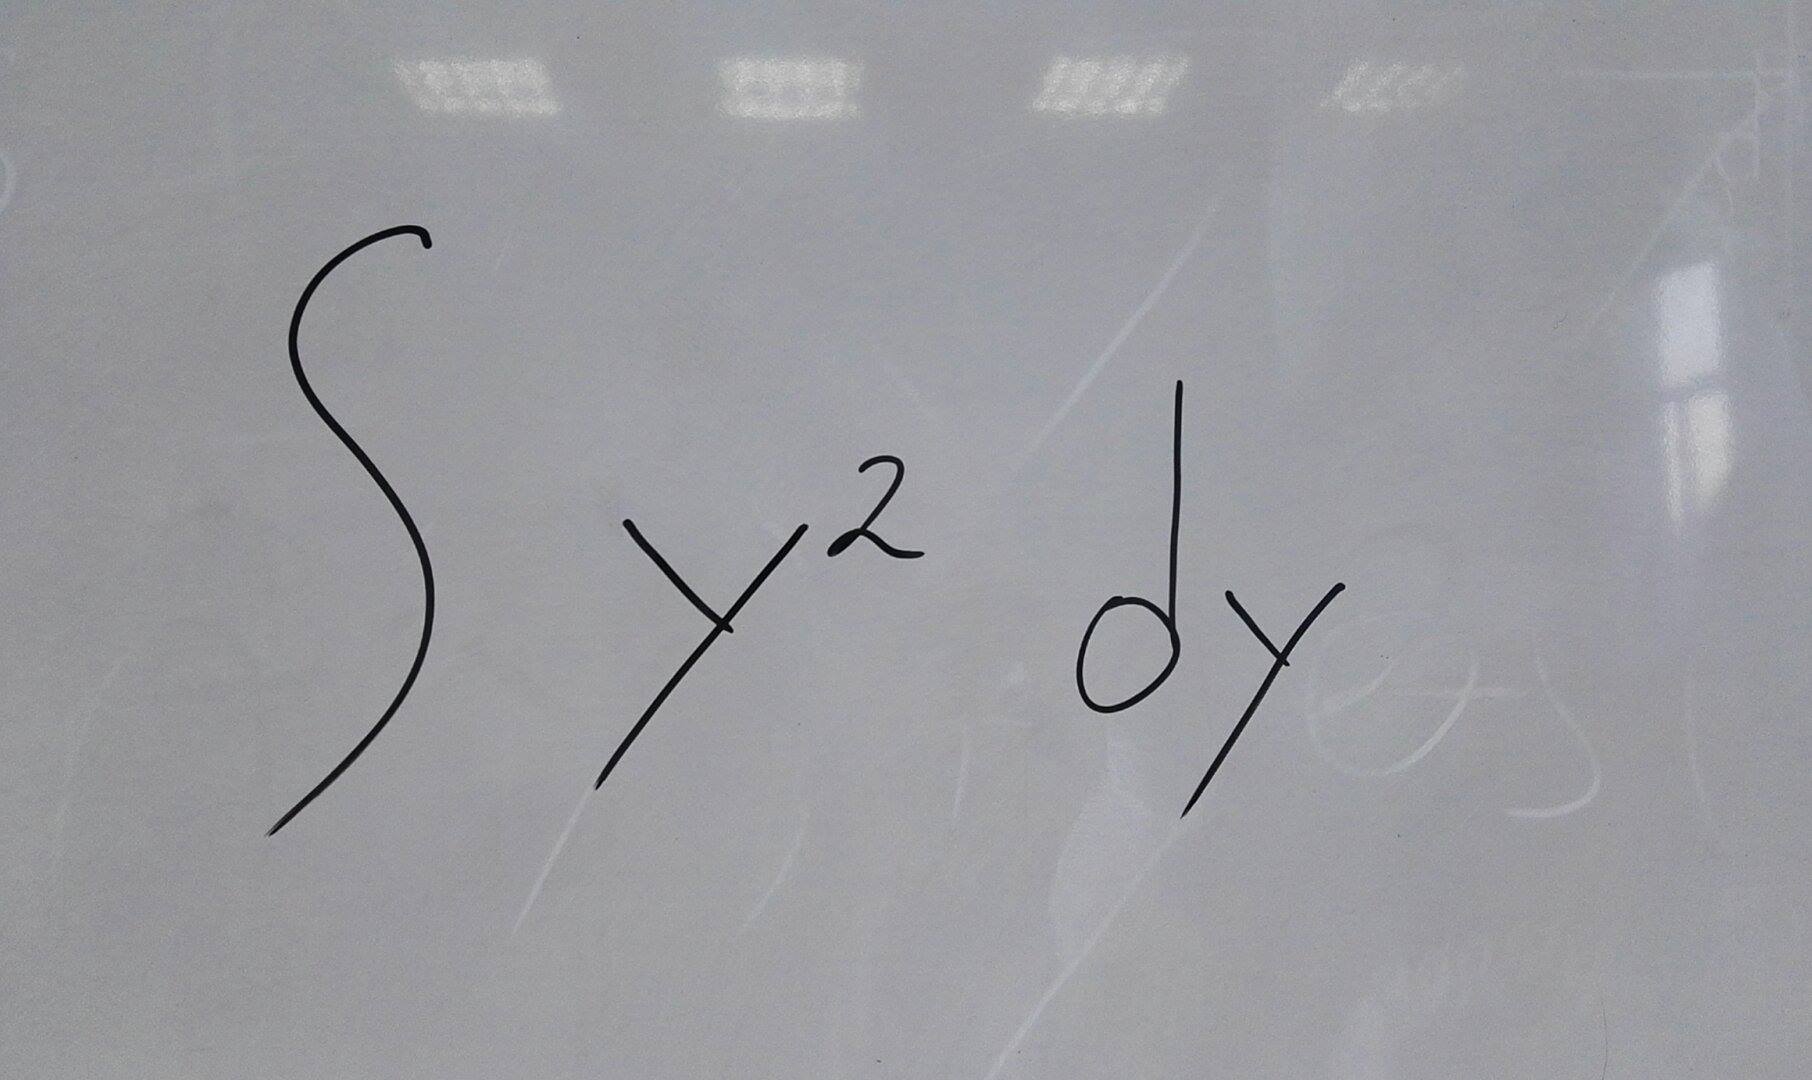 ∫ y² dy